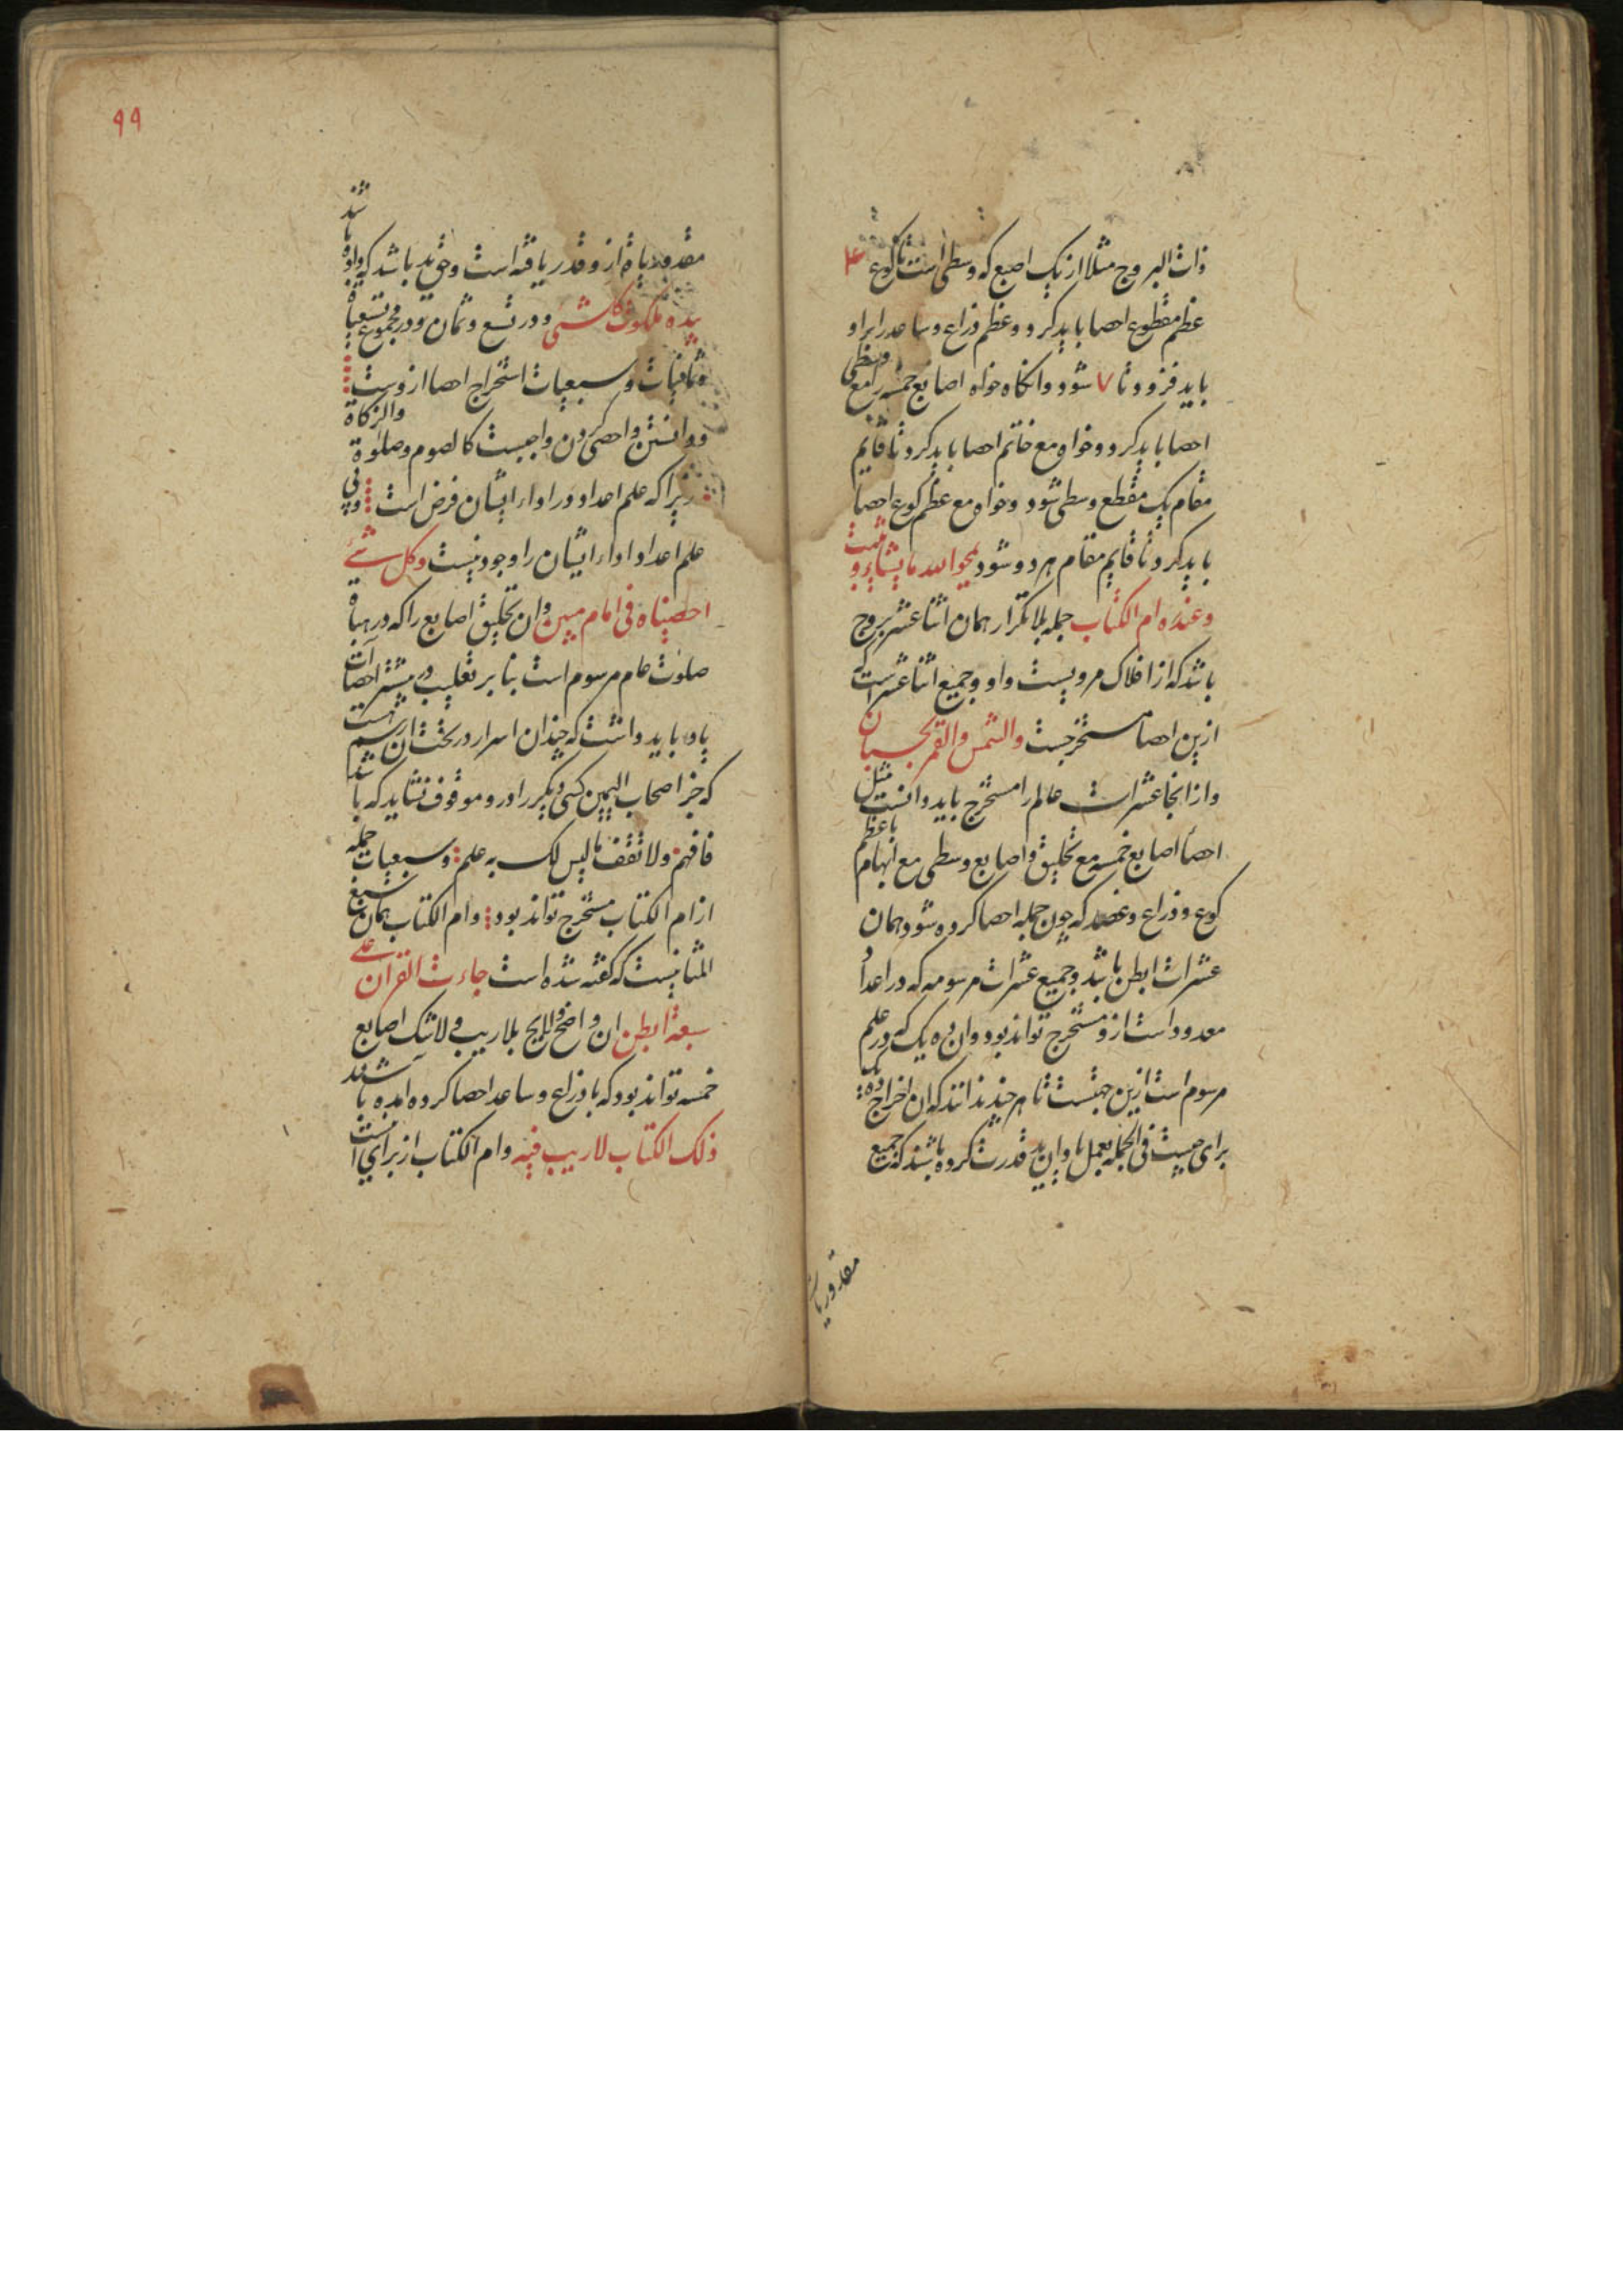 ذات البروج مثلا از یک اصبع که وسطی است تا کوع ۴
عظم مقطوع احصا باید کرد و عظم ذراع و ساعد را برو
باید فزود تا ۷ شود و انکاه خواه اصابع خمسه را مع وسطی
احصا باید کرد و خواه مع خاتم احصا باید کرد تا قایم
مقام یک مقطع وسطی شود و خواه مع عظم کوع احصا
باید کرد تا قایم مقام هر دو شود یمحوا الله ما یشاء و یثبت
وعنده ام الکتاب جمله بلا تکرار همان اثنا عشر بروج
باشد که از افلاک مرویست و او و جمیع اثنا عشرات که
ازین احصا مستخرجست والشمس والقمر بحسبان
و از انجا عشرات عالم را مستخرج باید دانست مثل
احصا اصابع خمسه مع تخلیق و اصابع وسطی مع ابهام با عظم
کوع و ذراع و عضد که چون جمله احصا کرده شود همان
عشرات ابطن باشد و جمیع عشرات مرسومه که در اعداد
معدود است ازو مستخرج تواند بود و ان ده یک که در علم
مرسوم است ازین جهتست تا هر چند ندانند که ان اخراج ده یک
برای چیست فی الجمله بعمل باو ان ید قدرت کرده باشند که جمیع
مقدوریات
۹۹
مقدوریات ازو قدر یافته است و حق ید باشد که واو باشد
بیده ملکوت کل شیء و در تسع و ثمان و در مجموع تسعیات
و ثمانیات و سبعیات استخراج احصا ازوست
و دانستن و احصی کردن واجبست کالصوم وصلوة والزکاة
زیرا که علم اعداد در اداء ایشان فرض است و بی
علم اعداد اداء ایشان را وجود نیست وکل شیء
احصیناه فی امام مبین و ان تخلیق اصابع را که در هیات
صلوت عام مرسوم است بنا بر تغلیب در بیشتر احصاآت
یاد باید داشت که چندان اسرار در تحت ان رسم هست
که جز اصحاب الیمین کسی دیکر را در و موقوف نشاید که باشد
فافهم ولا تقف ما لیس لک به علم و سبعیات جمله
از ام الکتاب مستخرج تواند بود و ام الکتاب همان سبع
المثانیست که کفته شده است جاءت القرآن علی
سبعة ابطن ان واضح و لایح بلا ریب و لا شک اصابع
خمسه تواند بود که با ذراع و ساعد احصا کرده امده باشد
ذلک الکتاب لا ریب فیه و ام الکتاب از برای انست